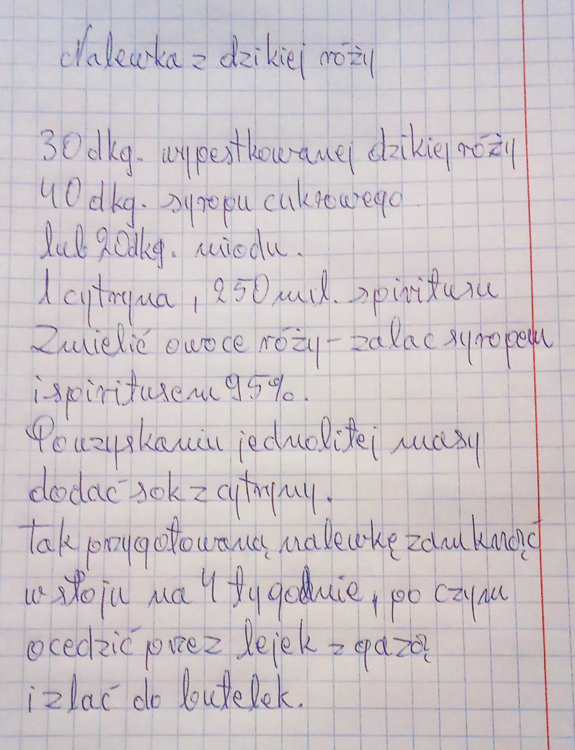 Nalewka z dzikiej róży
30 dkg. wypestkowanej dzikiej róży
40 dkg. syropu cukrowego
lub 20dkg. miodu.
1 cytryna, 250 mil. spirytusu
Zmielić owoce róży - zalać syropem
i spirytusem 95%.
Po uzyskaniu jednolitej masy
dodać sok z cytryny.
tak przygotowaną nalewkę zamknąć
w słoju na 4 tygodnie, po czym
ocedzić przez lejek z gazą
i zlać do butelek.